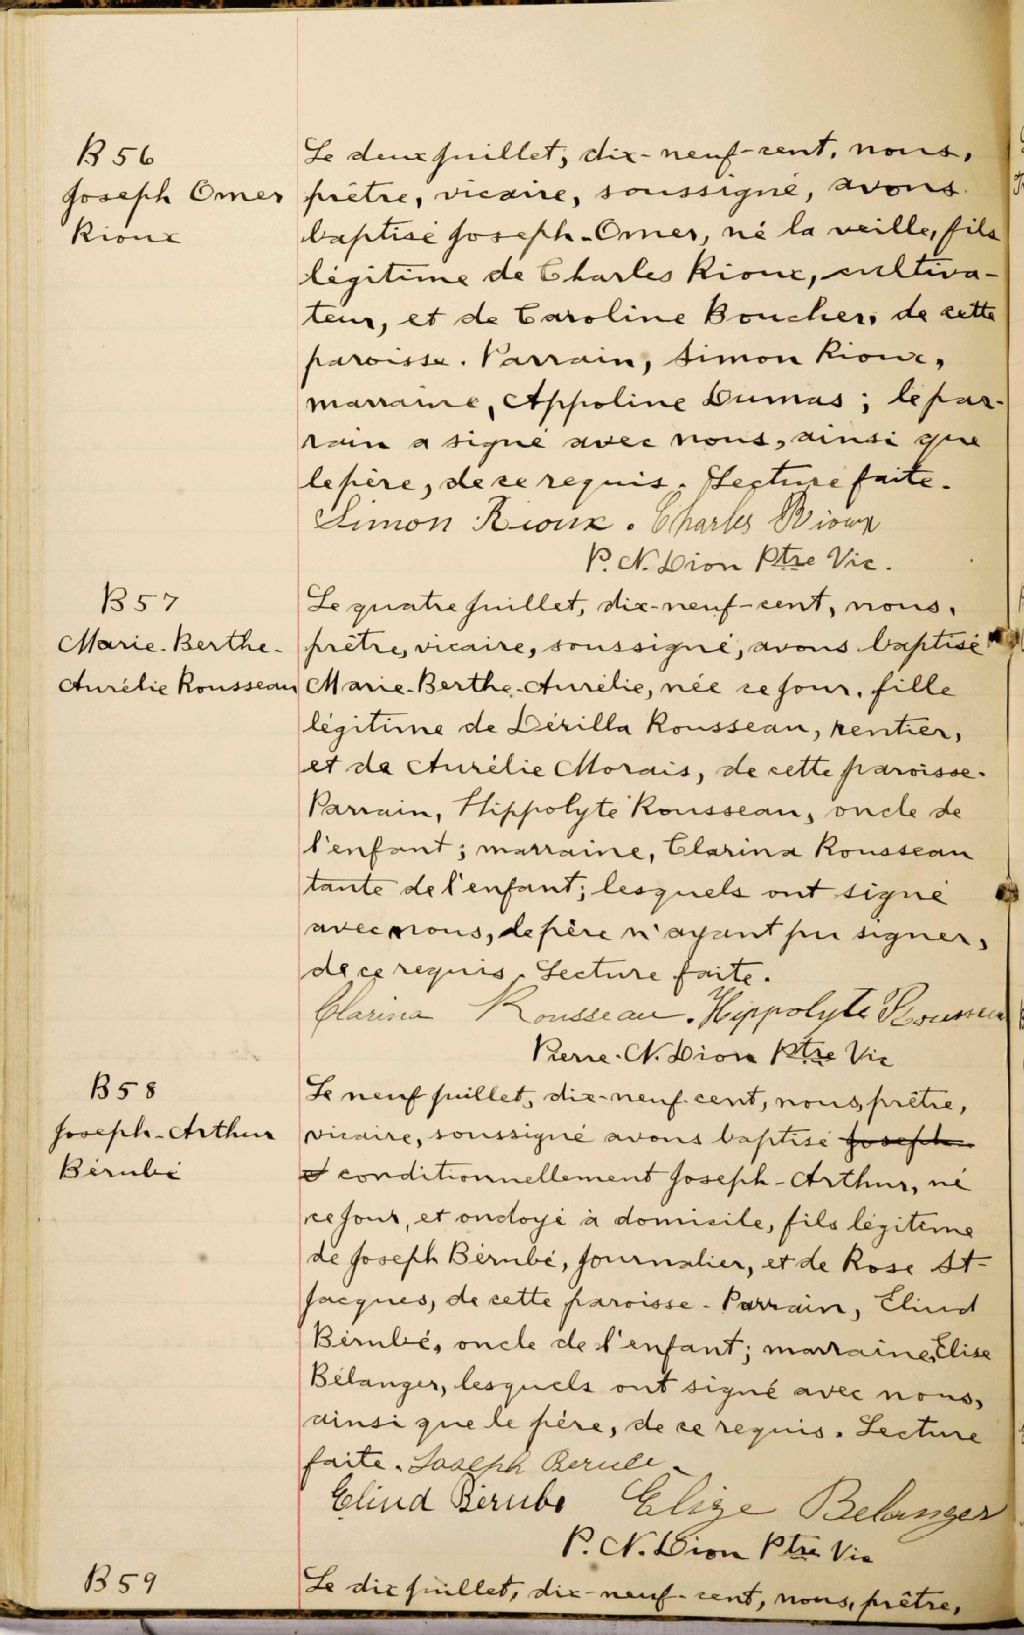 B 56
Joseph Omer
Rioux
Le deux juillet, dix-neuf-cent, nous,
prêtre, vicaire, soussigné, avons
baptisé Joseph-Omer, né la veille, fils
légitime de Charles Rioux, cultiva-
teur, et de Caroline Boucher, de cette
paroisse. Parrain, Simon Rioux,
marraine, Appoline Dumas; le par-
rain a signé avec nous, ainsi que
le père, de ce requis. Lecture faite.
Simon Rioux. Charles Rioux
P. N. Dion Ptre Vic.
B 57
Marie-Berthe-
Aurélie Rousseau
Le quatre juillet, dix-neuf-cent, nous,
prêtre, vicaire, soussigné, avons baptisé
Marie-Berthe-Aurélie, née ce jour, fille
légitime de Dérilla Rousseau, rentier,
et de Aurélie Morais, de cette paroisse.
Parrain, Hippolyte Rousseau, oncle de
l'enfant; marraine, Clarina Rousseau
tante de l'enfant; lesquels ont signé
avec nous, le père n'ayant pu signer,
de ce requis. Lecture faite.
Clarina Rousseau. Hippolyte Rousseau
Pierre. N. Dion Ptre Vic
B 58
Joseph-Arthur
Bérubé
Le neuf juillet, dix-neuf cent, nous, prêtre,
vicaire, soussigné avons baptisé Joseph-
conditionnellement Joseph-Arthur, né
ce jour, et ondoyé à domicile, fils légitime
de Joseph Bérubé, journalier, et de Rose St-
Jacques, de cette paroisse - Parrain, Eliud
Bérubé, oncle de l'enfant; marraine, Elise
Bélanger, lesquels ont signé avec nous,
ainsi que le père, de ce requis. Lecture
faite. Joseph Berube
Eliud Bérube Elize Belanger
P. N. Dion Ptre Vic
B 59
Le dix juillet, dix-neuf-cent, nous, prêtre,